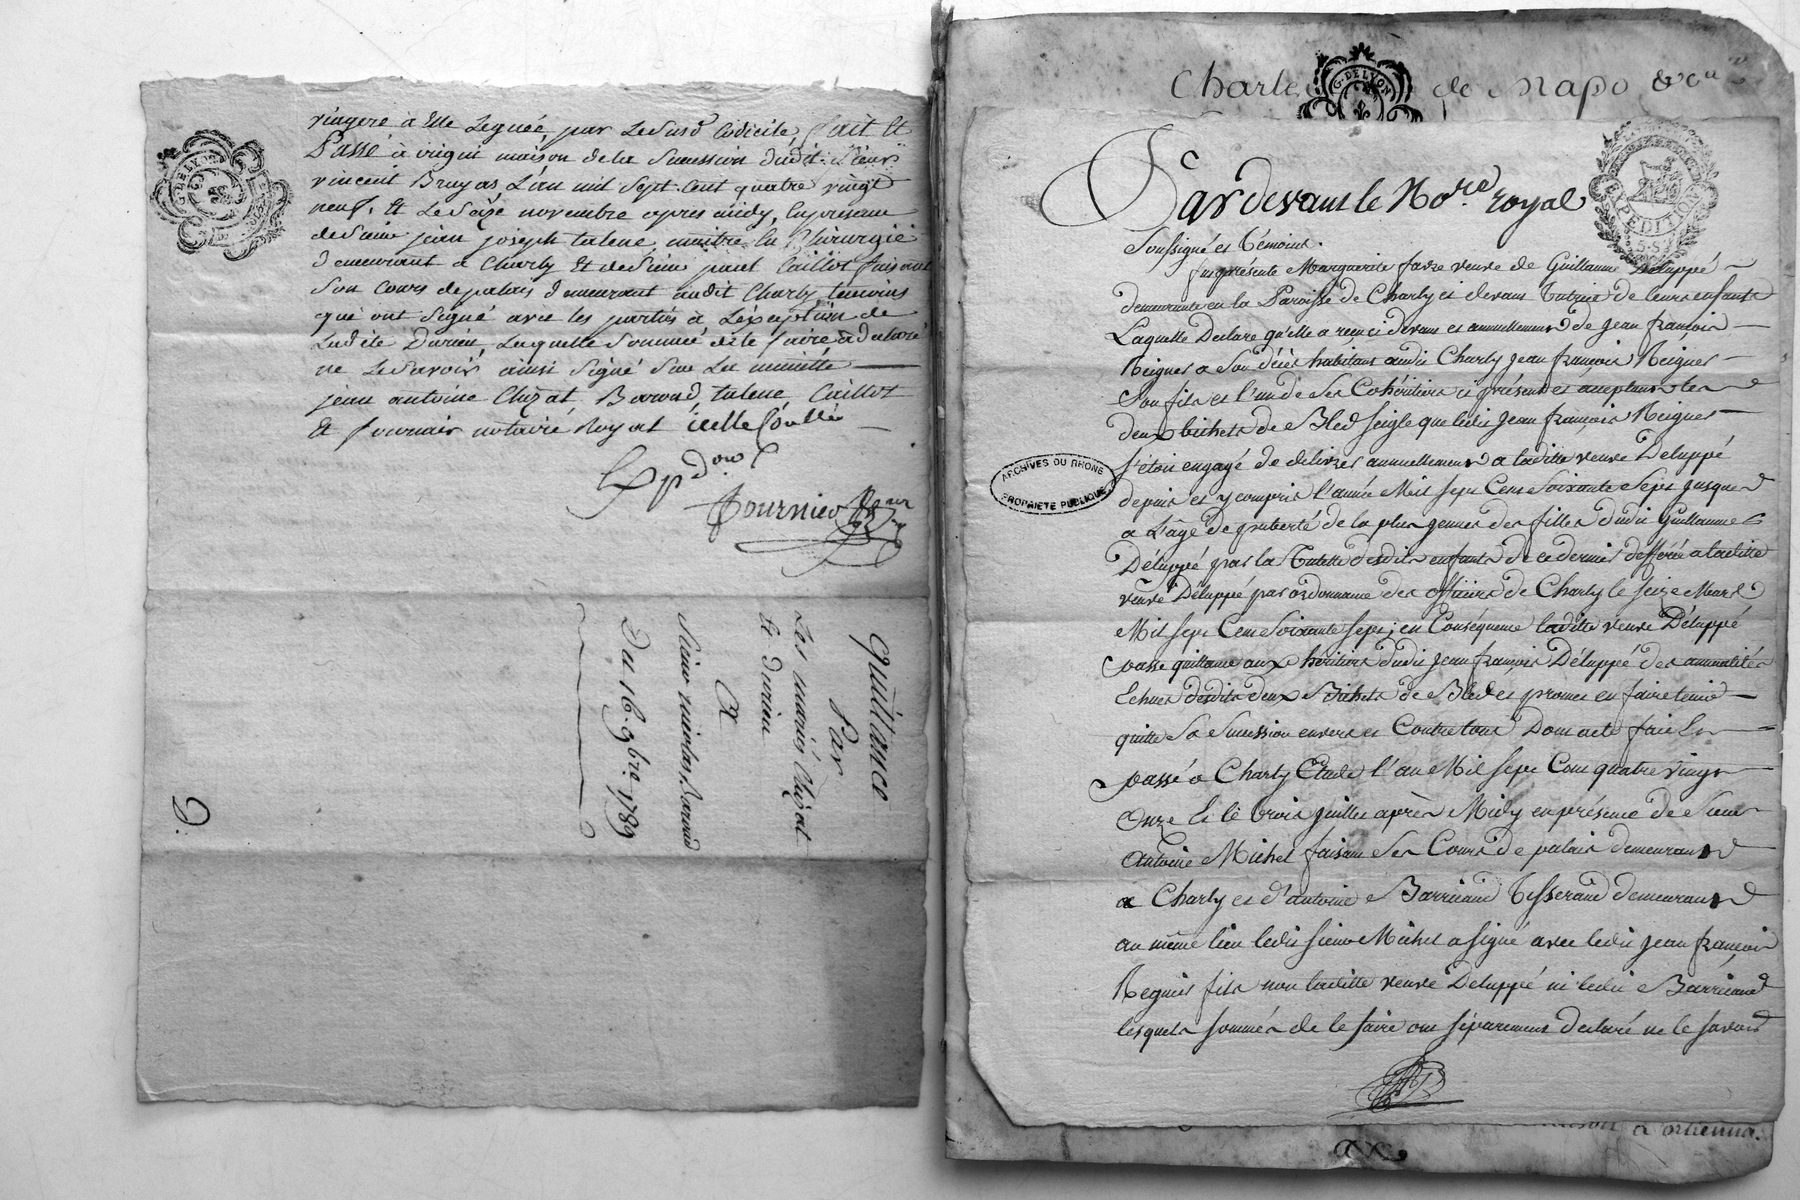 viagere à Elle Leguée, par Le Susd. Codicile, fait Et
Passé à irigni maison de la Succession dudit Sieur
vincent Bruyas L'an mil Sept cent quatre vingt
neuf. Et Le Seize novembre apres midy, En presence
de Sieur jean joseph talene maitre En Chirurgie
demeurant a Charly Et de Sieur paul Caillot faisant
Son Cours de palais demeurant audit Charly, temoins
qui ont Signé avec les parties à L'exception de
Ladite Durieu, Laquelle Sommée de le faire, à Declaré
ne Le Savoir ainsi Signé Sur La minutte
jean antoine Chizat Baraud talene Caillot
Et fournier notaire Royal icelle Contlée
Exp.don
Fournier
Quittance
Par
Les mariés Chizat
Et durieu
A
Sieur nicolas Baraud
Du 16. 9bre. 1789
G. DE LYON
Charle de Napo
G. DE LYON
EXPEDITION
Pardevant le No.re royal
Soussigné et témoins.
fut présente Marguerite favre veuve de Guillaume Déluppé
demeurante en la Paroisse de Charly ci devant Tutrice de leurs enfants
Laquelle Déclare qu'elle a reçu ci devant et annuellement de Jean françois
Reigner a Son décès habitant audit Charly Jean françois Reigner
Son fils et l'un de Ses Cohéritiers ci présent et acceptant les
deux bichets de Bled Seigle que ledit Jean françois Reigner
s'étoit engagé de délivrer annuellement a ladite veuve Déluppé
depuis et y compris l'année Mil Sept Cent Soixante Sept jusques
a L'âge de puberté de la plus jeune des filles dudit Guillaume
Déluppé par la Tutelle desdits enfants de ce dernier défférée a ladite
veuve Déluppé par ordonnance des officiers de Charly le Seize Mars
Mil Sept Cent Soixante Sept; en Conséquence ladite veuve Déluppé
passe quittance aux héritiers dudit Jean françois Déluppé des annualités
Echues desdits deux Bichets de Bled et promet en faire tenir
quitte Sa Succession envers et Contre tous Dont acte fait Et
passé a Charly Etude l'an Mil Sept Cent quatre vingt
Onze Et le trois Juillet après Midy en présence de Sieur
Antoine Michel faisant Ses Cours de palais demeurant
a Charly et d'antoine Barricand Tisserand demeurant
au même lieu ledit Sieur Michel a Signé avec ledit Jean françois
Regnier fils non ladite veuve Déluppé ni ledit Barricand
lesquels Sommés de le faire ont Séparement déclaré ne le Savoir
ARCHIVES DU RHONE
PROPRIÉTÉ PUBLIQUE